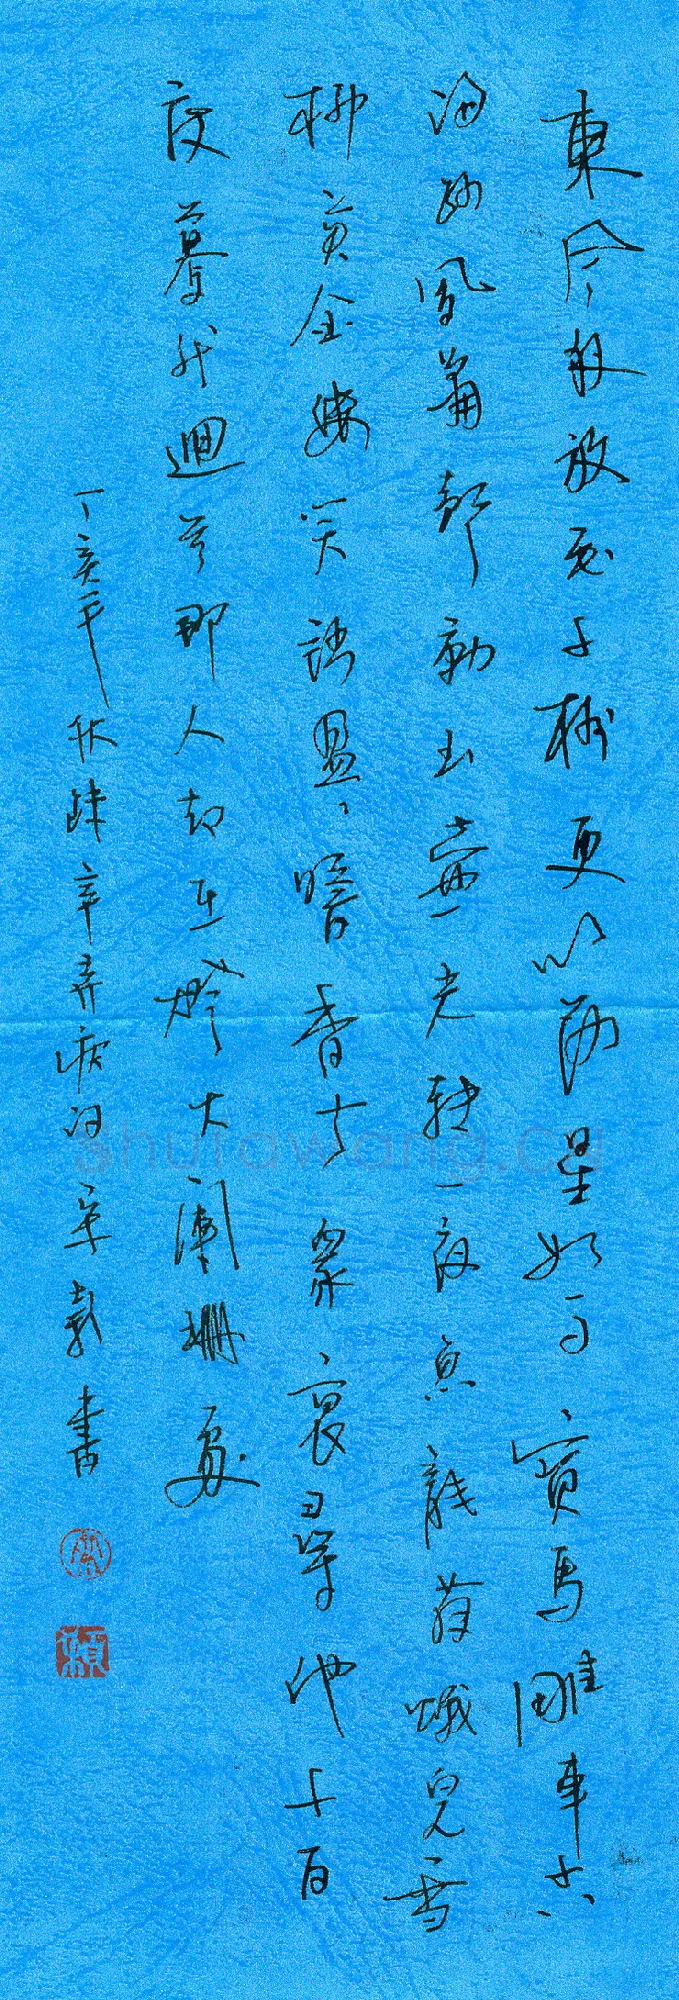 東風夜放花千樹更吹落星如雨寶馬雕車香
滿路鳳簫聲動玉壺光轉一夜魚龍舞蛾兒雪
柳黃金縷笑語盈々暗香去衆裏尋他千百
度驀然迴首那人却在燈火闌珊處
丁亥年秋録辛弃疾词書